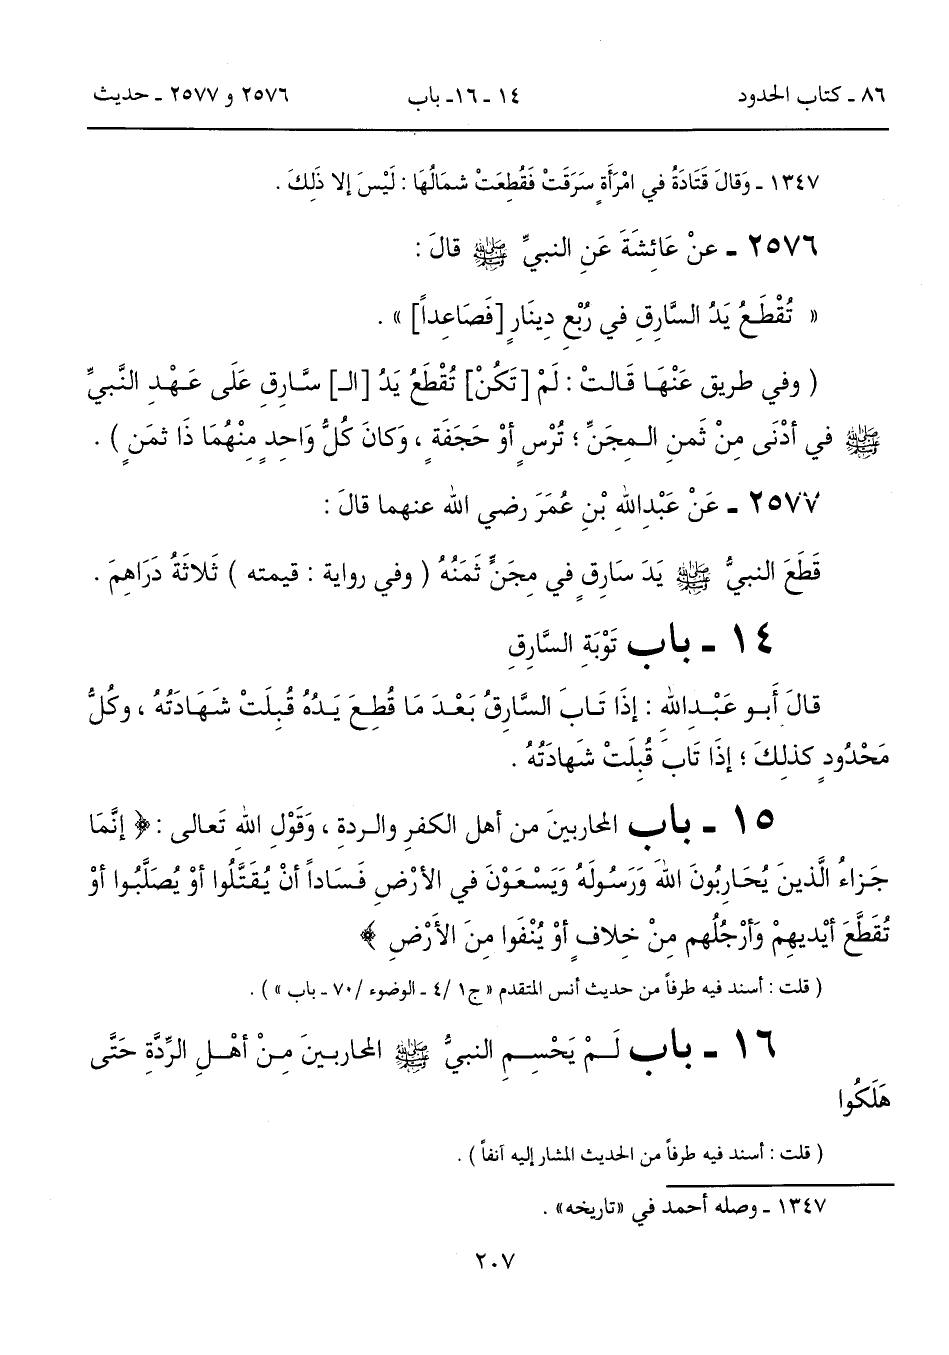 ٨٦ ـ كتاب الحدود ١٤ ـ ١٦ـ باب ٢٥٧٦ و ٢٥٧٧ ـ حديث
١٣٤٧ ـ وَقالَ قَتَادَةُ في امْرَأَةٍ سَرَقَتْ فَقُطِعَتْ شمَالُهَا : لَيْسَ إلا ذَلِكَ .
٢٥٧٦ ـ عنْ عَائِشَةَ عَنِ النبيِّ ﷺ قالَ :
« تُقْطَعُ يَدُ السَّارِقِ في رُبْعِ دِينَارٍ [فَصَاعِداً] » .
( وفي طريق عَنْهَا قَالتْ : لَمْ [تَكُنْ] تُقْطَعُ يَدُ [الـ] سَّارِقِ عَلَى عَهْدِ النَّبيِّ
ﷺ في أدْنَى مِنْ ثَمنِ المِجَنِّ ؛ تُرْسٍ أوْ حَجَفَةٍ ، وَكانَ كُلُّ وَاحِدٍ مِنْهُمَا ذَا ثمَنٍ ) .
٢٥٧٧ ـ عَنْ عَبْدِاللهِ بْنِ عُمَرَ رضي الله عنهما قالَ :
قَطَعَ النبيُّ ﷺ يَدَ سَارِقٍ في مِجَنٍّ ثَمَنُهُ ( وفي رواية : قيمته ) ثَلاثَةُ دَرَاهِمَ .
١٤ ـ باب تَوْبَةِ السَّارِقِ
قالَ أَبو عَبْدِاللهِ : إذَا تَابَ السَّارِقُ بَعْدَ مَا قُطِعَ يَدُهُ قُبِلَتْ شَهَادَتُهُ ، وكُلُّ
مَحْدُودٍ كذلِكَ ؛ إذَا تَابَ قُبِلَتْ شَهادَتُهُ .
١٥ ـ باب المحاربينَ من أهل الكفرِ والردة ، وَقَوْلِ اللهِ تَعالى : ﴿ إنَّمَا
جَزاءُ الَّذينَ يُحَارِبُونَ اللهَ وَرَسُولَهُ وَيَسْعَوْنَ في الأرْضِ فَسَاداً أنْ يُقَتَّلُوا أوْ يُصَلَّبُوا أوْ
تُقَطَّعَ أيْديهِمْ وَأرْجُلُهم مِنْ خلافٍ أوْ يُنْفَوا مِنَ الأَرْضِ ﴾
( قلت : أسند فيه طرفاً من حديث أنس المتقدم « ج١ /٤ ـ الوضوء /٧٠ ـ باب » ) .
١٦ ـ باب لَمْ يَحْسِمِ النبيُّ ﷺ المحاربينَ مِنْ أهْلِ الرِّدَّةِ حَتَّى
هَلَكُوا
( قلت : أسند فيه طرفاً من الحديث المشار إليه آنفاً ) .
١٣٤٧ ـ وصله أحمد في «تاريخه» .
٢٠٧